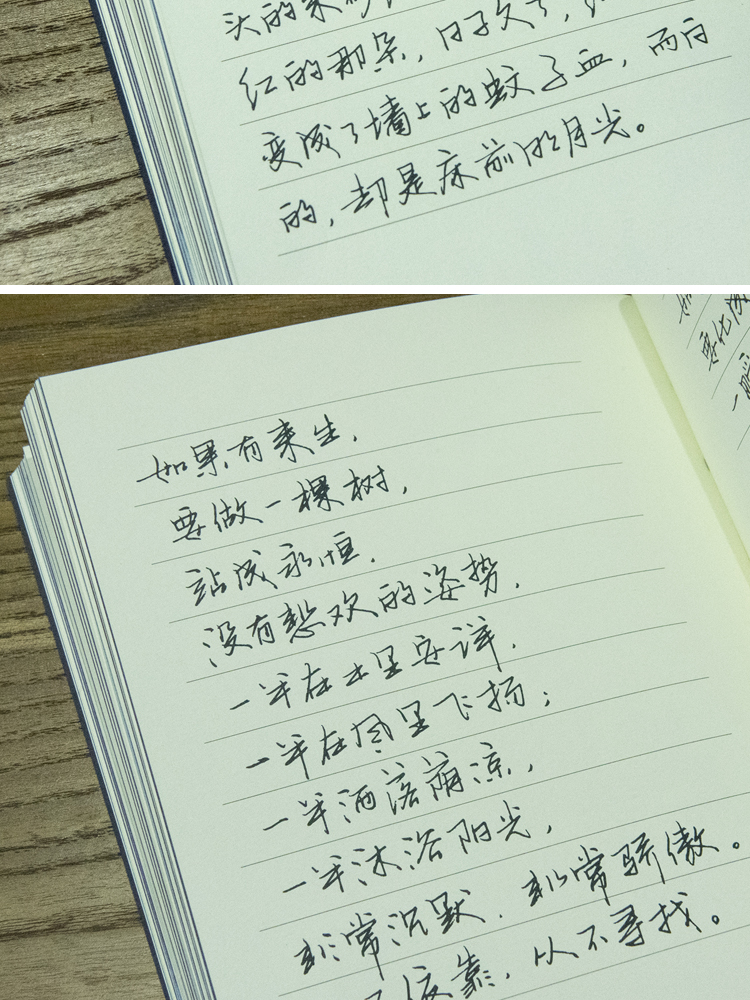 头的
红的那朵，日子久了，
变成了墙上的蚊子血，而白
的，却是床前的月光。
如果有来生，
要做一棵树，
站成永恒，
没有悲欢的姿势，
一半在土里安详，
一半在风里飞扬；
一半洒落荫凉，
一半沐浴阳光，
非常沉默，非常骄傲。
依靠，从不寻找。